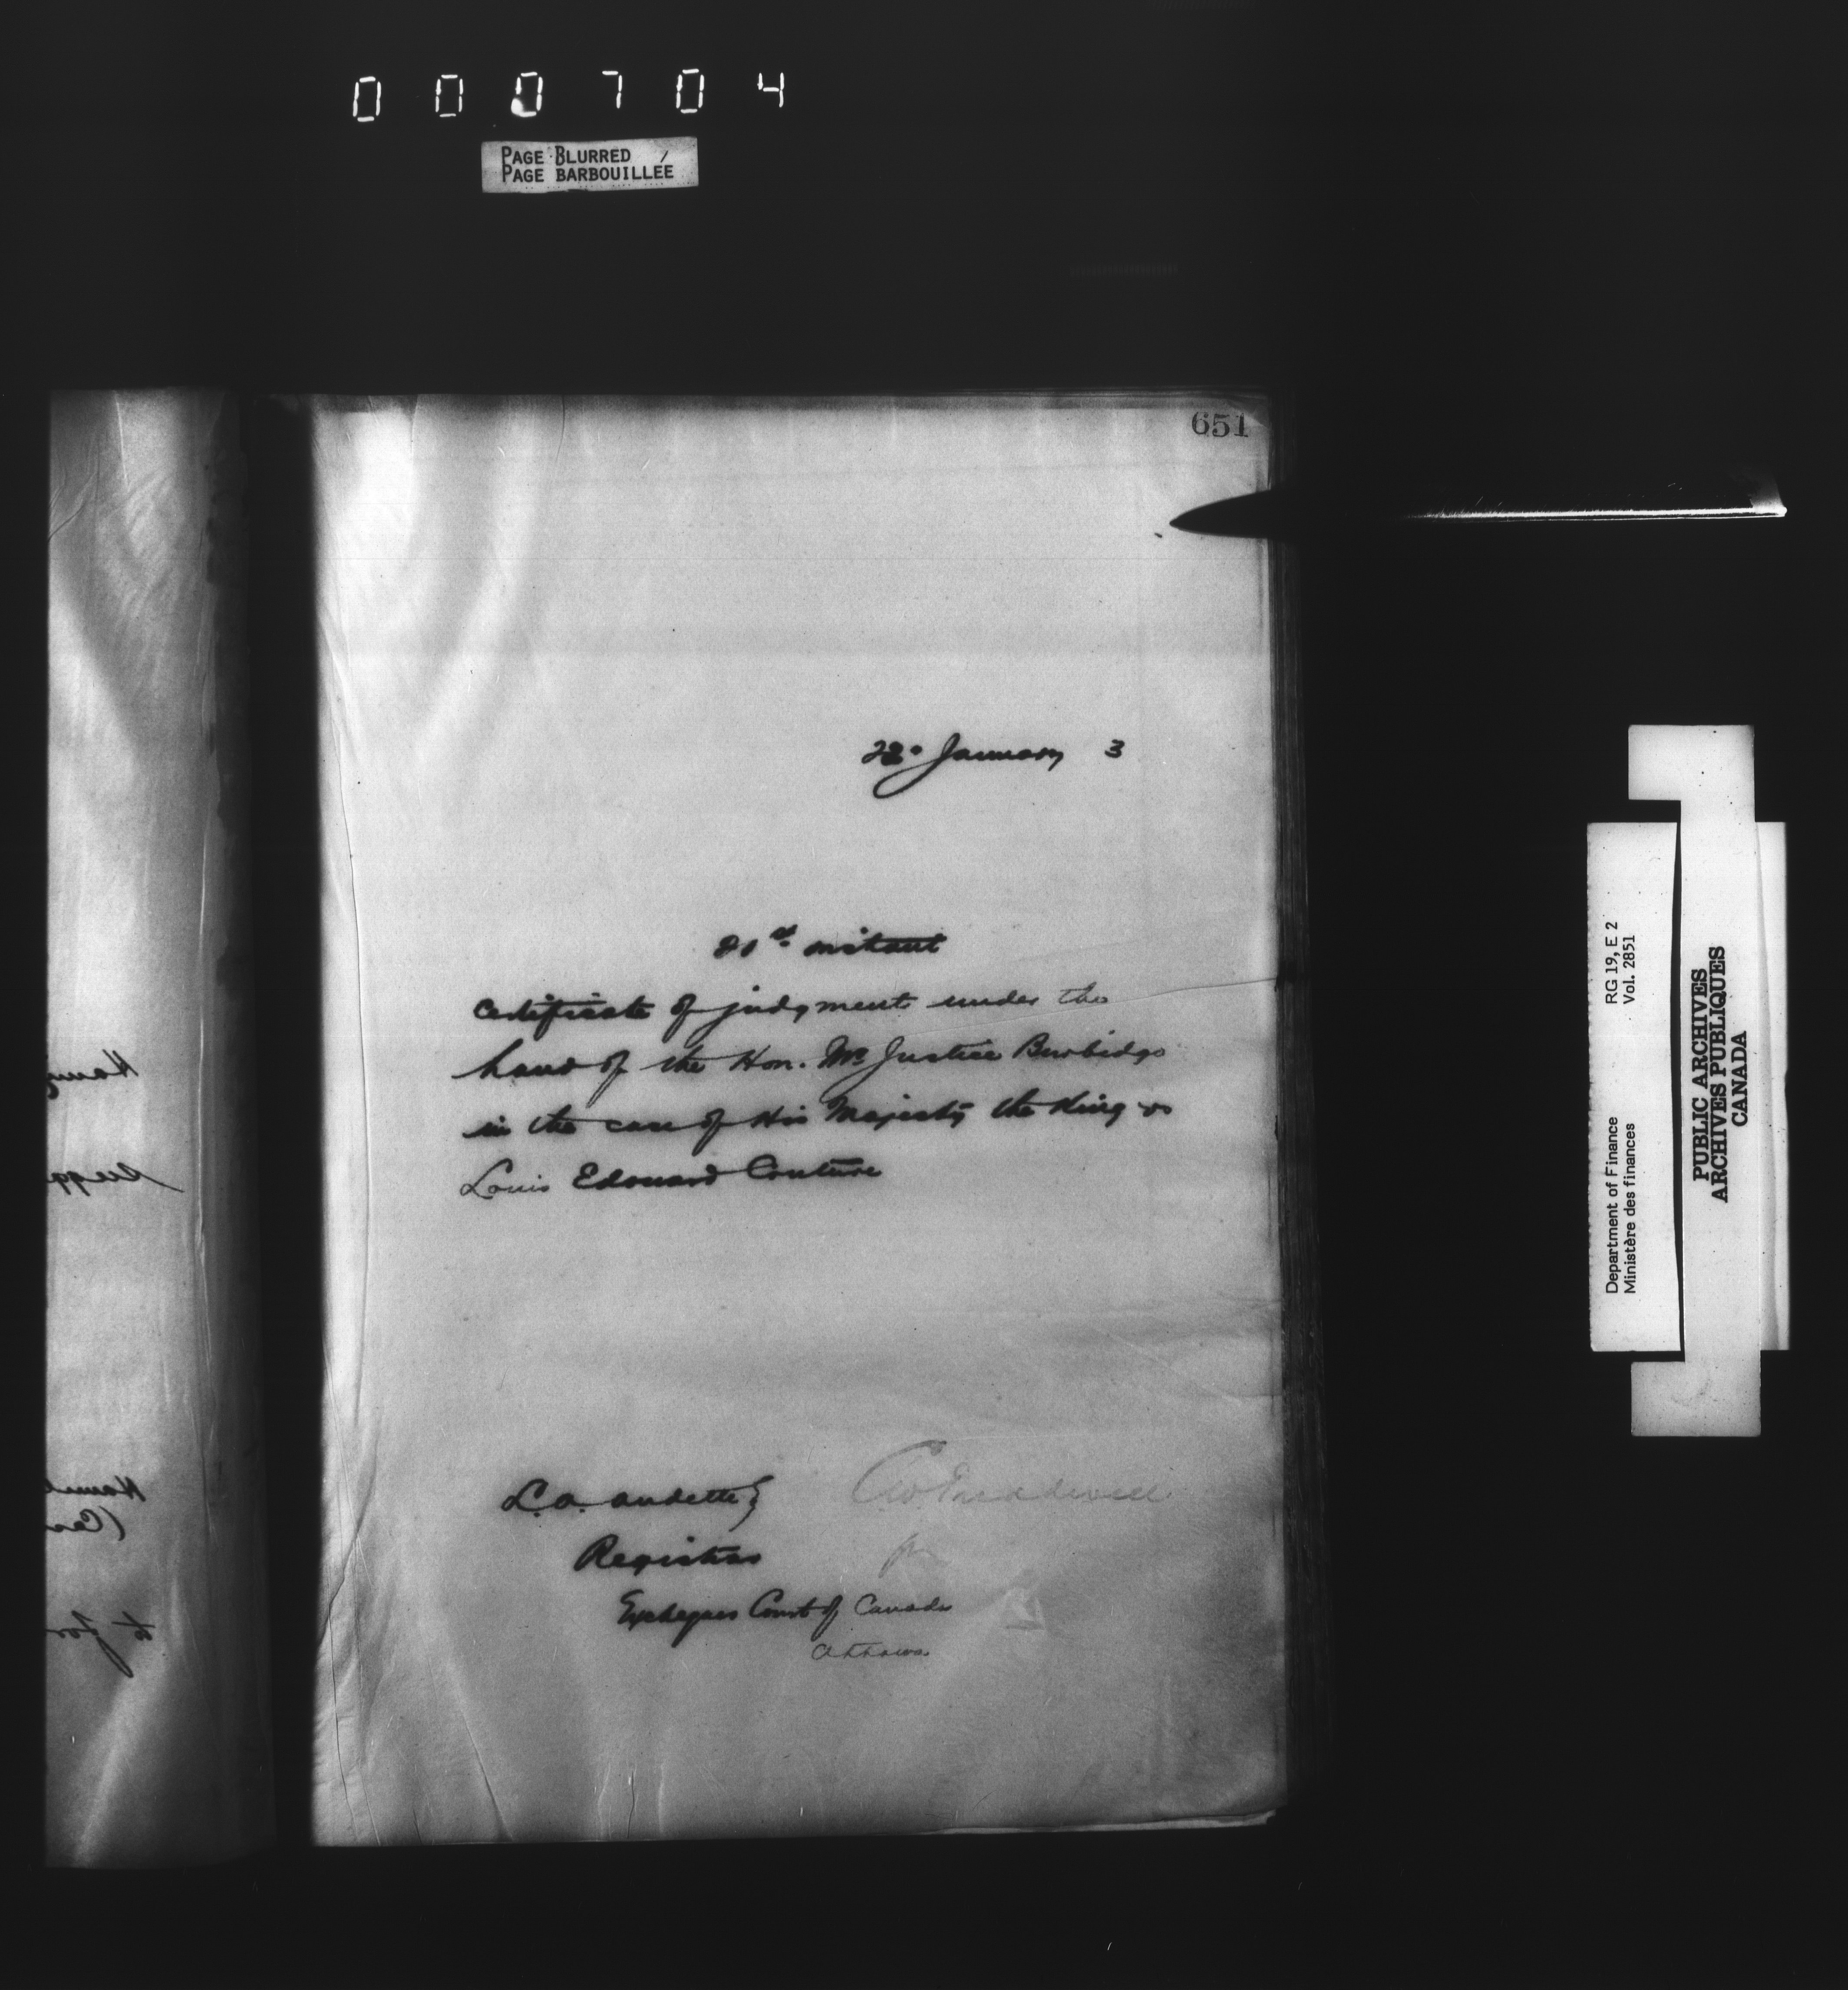 000704
PAGE BLURRED
PAGE BARBOUILLÉE
651
January 3
21st instant
certificate of judgment under the
hand of the Hon. Mr Justice Burbidge
in the case of His Majesty the King vs
Louis Edouard Couture
L. A. Audette
Registrar
Exchequer Court of Canada
Ottawa
Department of Finance RG 19, E 2
Ministère des finances Vol. 2851
PUBLIC ARCHIVES
ARCHIVES PUBLIQUES
CANADA